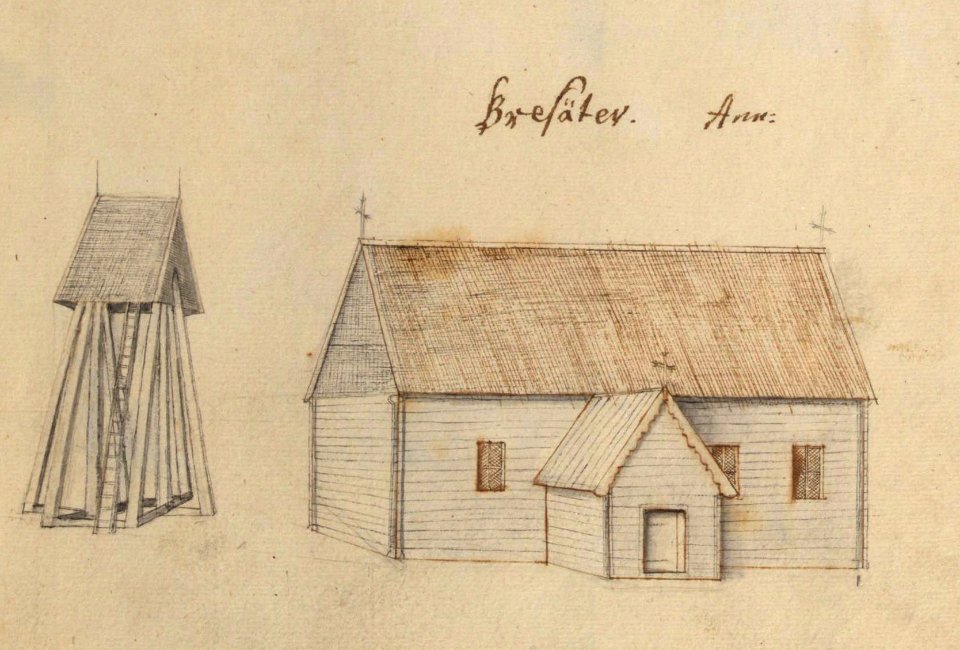 Bresäter. Ann: